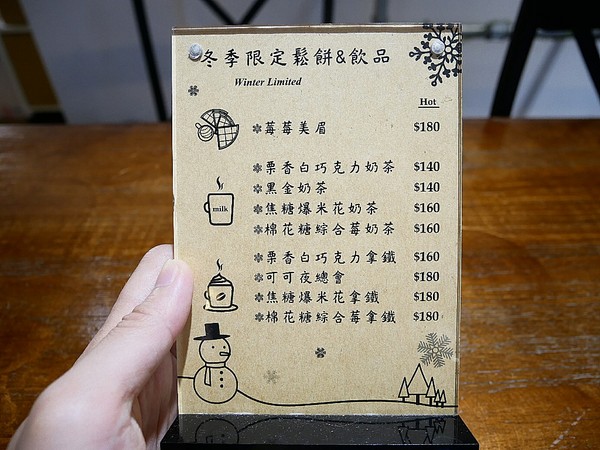 冬季限定鬆餅&飲品
Winter Limited
Hot
莓莓美眉 $180
栗香白巧克力奶茶 $140
黑金奶茶 $140
焦糖爆米花奶茶 $160
棉花糖綜合莓奶茶 $160
milk
栗香白巧克力拿鐵 $160
可可夜總會 $180
焦糖爆米花拿鐵 $180
棉花糖綜合莓拿鐵 $180